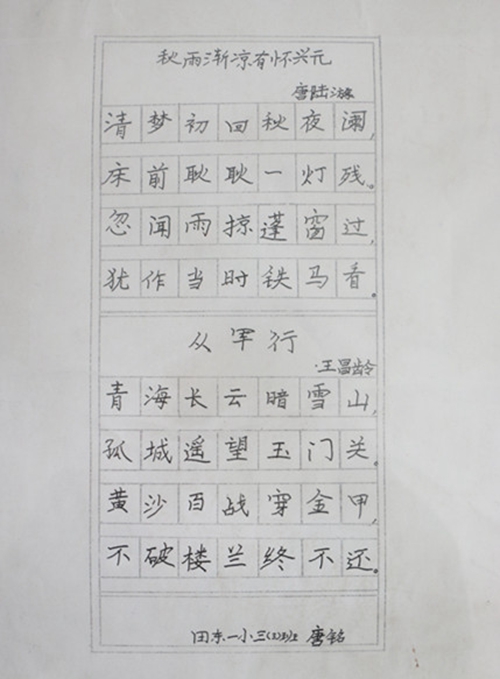 秋雨渐凉有怀兴元
唐陆游
清梦初回秋夜阑,
床前耿耿一灯残。
忽闻雨掠蓬窗过,
犹作当时铁马看。
从军行
·王昌龄
青海长云暗雪山,
孤城遥望玉门关。
黄沙百战穿金甲,
不破楼兰终不还。
田东一小三(2)班 唐铭